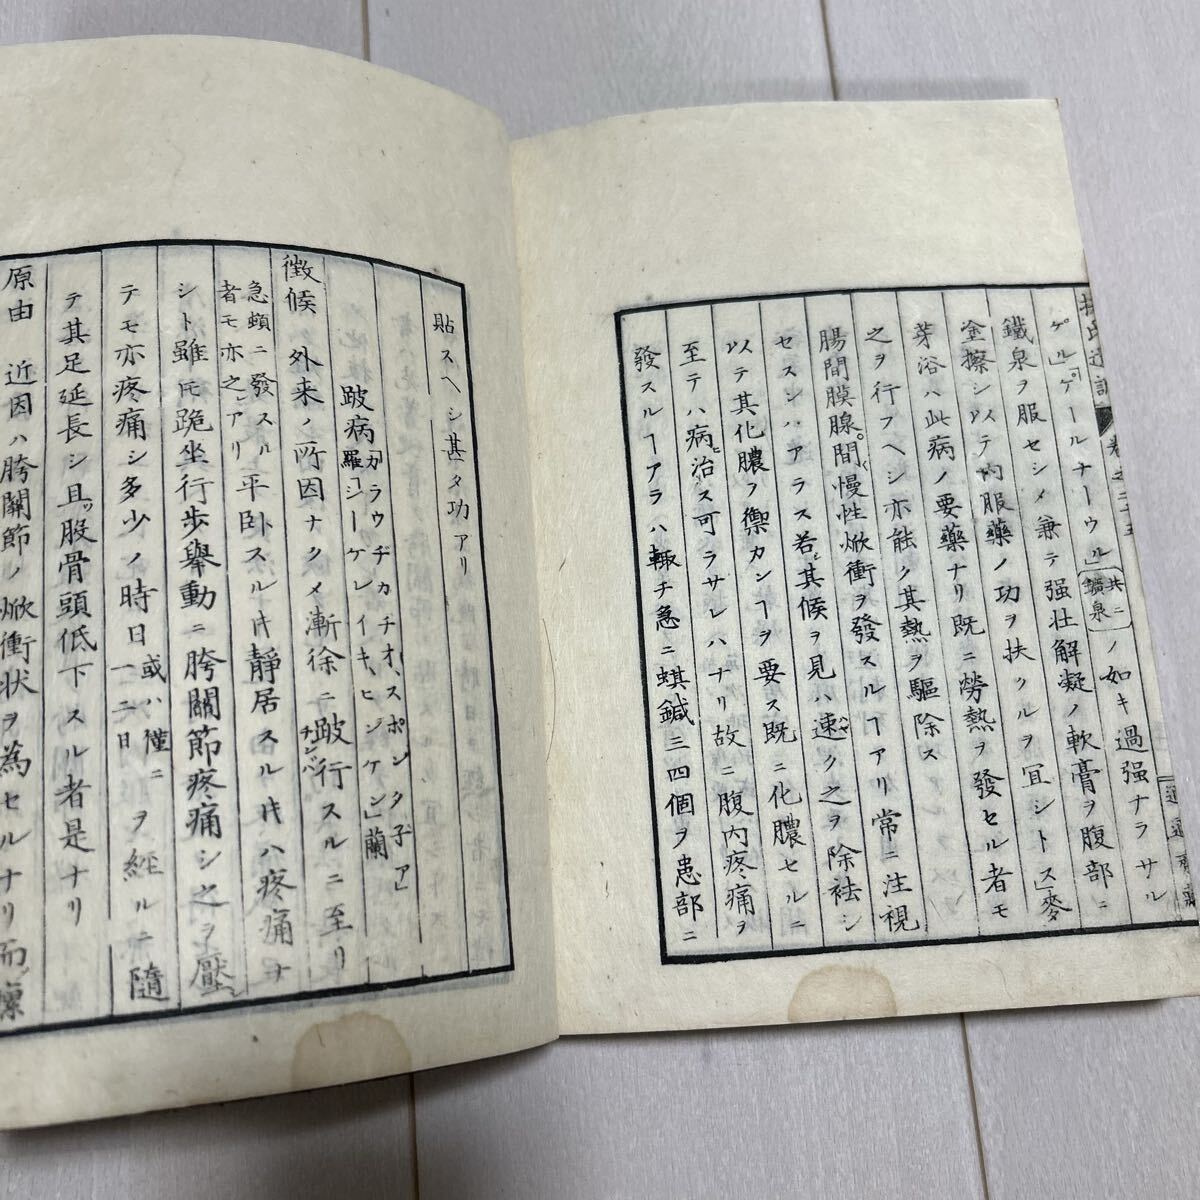 ゲル」「ゲールナーウル」共ニ鑛泉ノ如キ過强ナラサル
鐵泉ヲ服セシメ兼テ强壮解凝ノ軟膏ヲ腹部ニ
塗擦シ以テ内服藥ノ功ヲ扶クルヲ冝シトス」麥
芽浴ハ此病ノ要藥ナリ既ニ勞熱ヲ發セル者モ
之ヲ行フヘシ亦能ク其熱ヲ驅除ス
腸間膜腺間慢性焮衝ヲ發スルヿアリ常ニ注視
セスンハアラス若其候ヲ見ハ速ク之ヲ除祛シ
以テ其化膿ヲ禦カンヿヲ要ス既ニ化膿セルニ
至テハ病治ス可ラサレハナリ故ニ腹内疼痛ヲ
發スルヿアラハ輙チ急ニ蜞鍼三四個ヲ患部ニ
貼スヘシ甚タ功アリ
跛病「カラウヂカチオ、スポンタ子ア」羅「シーケレイキ、ヒンケン」蘭
徴候 外来ノ所因ナクメ漸徐ニ跛行チンバスルニ至リ
急頓ニ發スル者モ亦之アリ」平卧スルㇳキ静居スルㇳキハ疼痛ナ
シト雖ㇳモ跪坐行歩擧動ニ胯關節疼痛シ之ヲ壓シ
テモ亦疼痛シ多少ノ時日或ハ僅ニ一二日ヲ經ルニ隨
テ其足延長シ且股骨頭低下スル者是ナリ
原由 近因ハ胯關節ノ焮衝状ヲ為セルナリ而凜